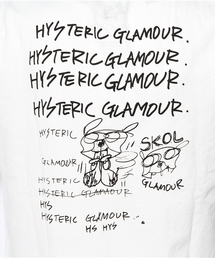 HYSTERIC GLAMOUR.
HYSTERIC GLAMOUR.
HYSTERIC GLAMOUR.
HYSTERIC GLAMOUR.
HYSTERIC
SKOL
GLAMOUR.
HYSTERIC
GLAMOUR
HYSTERIC GLAMOUR
HYS
HYSTERIC GLAMOUR.
HS HYS